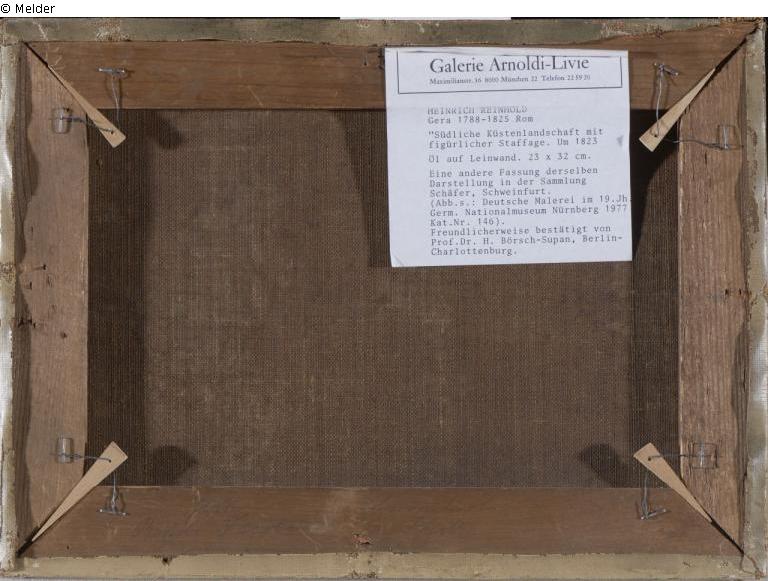 © Melder
Galerie Arnoldi-Livie
Maximilianstr. 36 8000 München 22 Telefon 22 59 20
HEINRICH REINHOLD
Gera 1788-1825 Rom
"Südliche Küstenlandschaft mit
figürlicher Staffage. Um 1823
Öl auf Leinwand. 23 x 32 cm.
Eine andere Fassung derselben
Darstellung in der Sammlung
Schäfer, Schweinfurt.
(Abb.s.: Deutsche Malerei im 19.Jh.
Germ. Nationalmuseum Nürnberg 1977
Kat.Nr. 146).
Freundlicherweise bestätigt von
Prof.Dr. H. Börsch-Supan, Berlin-
Charlottenburg.